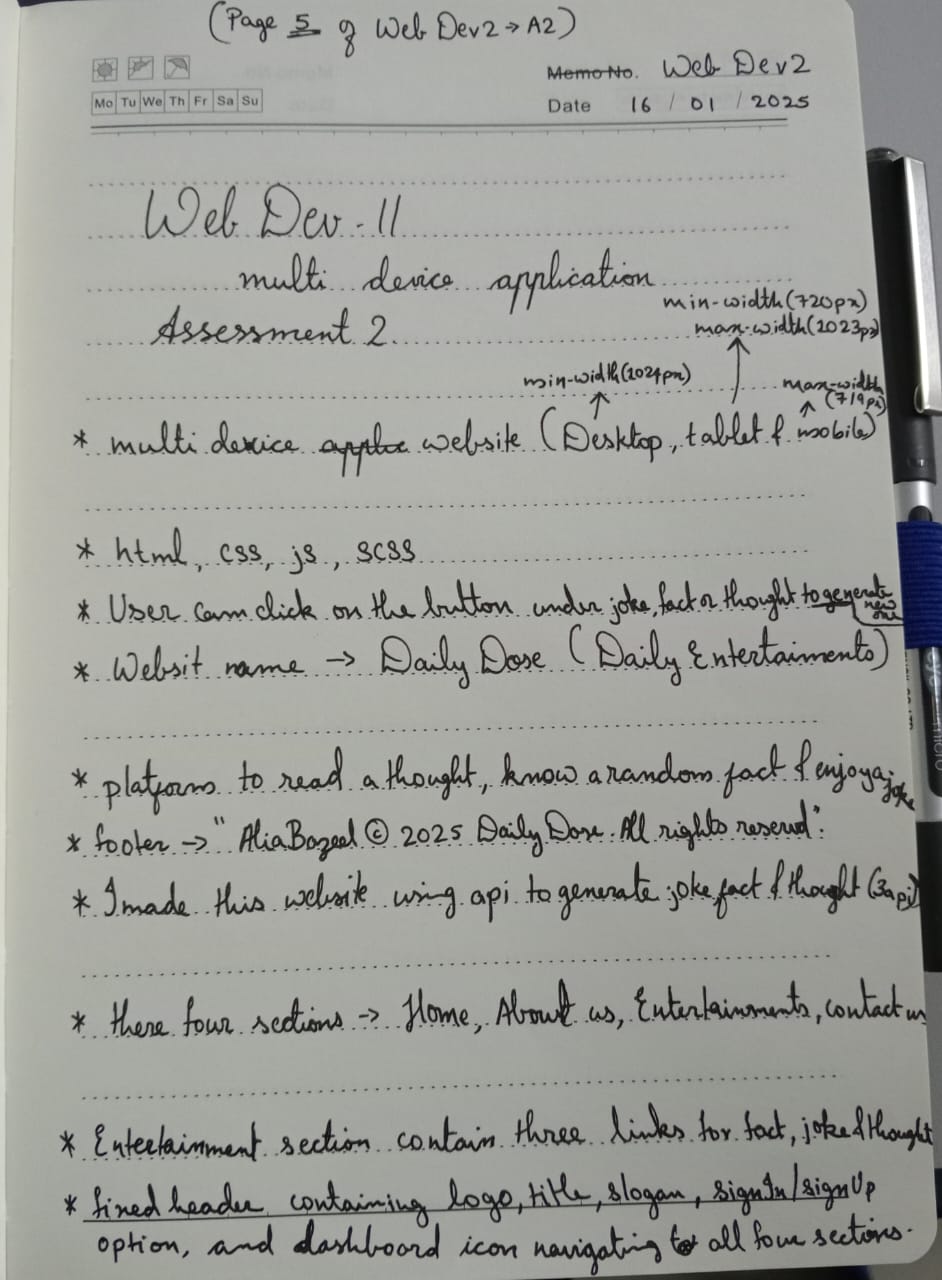 (Page 5 of Web Dev2 → A2)
Memo No. Web Dev2
Mo Tu We Th Fr Sa Su
Date 16 / 01 / 2025
Web Dev-11
multi device application
min-width(720px)
Assessment 2.
max-width(1023px)
min-width(1024px)
max-width
(719px)
* multi device applic website (Desktop, tablet & mobile)
* html, css, js, scss
* User can click on the button under joke, fact or thought to generate
new
one
* Websit name → Daily Dose (Daily Entertaiments)
* platform to read a thought, know a random fact & enjoy a joke
* footer → "Alia Bazeel © 2025 Daily Dose. All rights reserved".
* I made this website using api to generate joke, fact & thought (3api)
* there four sections → Home, About us, Entertainments, contact us
* Entertainment section contain three links for fact, joke & thought
* fixed header containing logo, title, slogan, signIn/signUp
option, and dashboard icon navigating to all four sections.